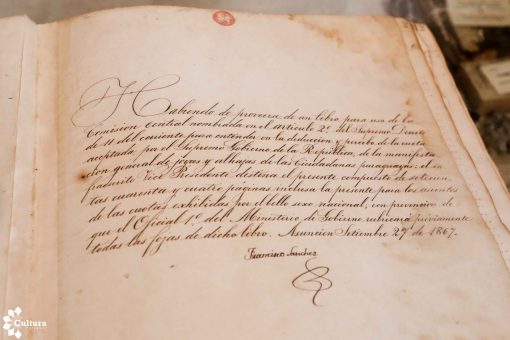 Habiendo de proveerse de un libro para uso de la
Comision central nombrada en el artículo 2º del Supremo Decreto
de 11 del corriente para entender en la deduccion y prueba de la cuota
aceptada por el Supremo Gobierno de la República, de la manifesta
cion general de joyas y alhajas de las Ciudadanas paraguayas: el in
frascrito Vice Presidente destina el presente compuesto de setecien
tas cuarenta y cuatro paginas inclusa la presente para los asientos
de las cuotas exhibidas por el bello sexo nacional, con prevencion de
que el Oficial 1º del Ministerio de Gobierno rubricará préviamente
todas las fojas de dicho libro. Asuncion Setiembre 27 de 1867.
Francisco Sanchez
Cultura